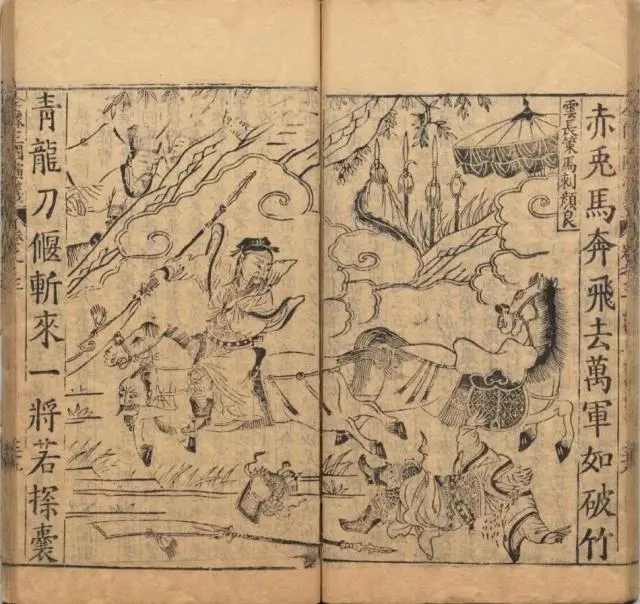 赤兎馬奔飛去萬軍如破竹
雲長策馬刺顔良
青龍刀偃斬來一將若探囊